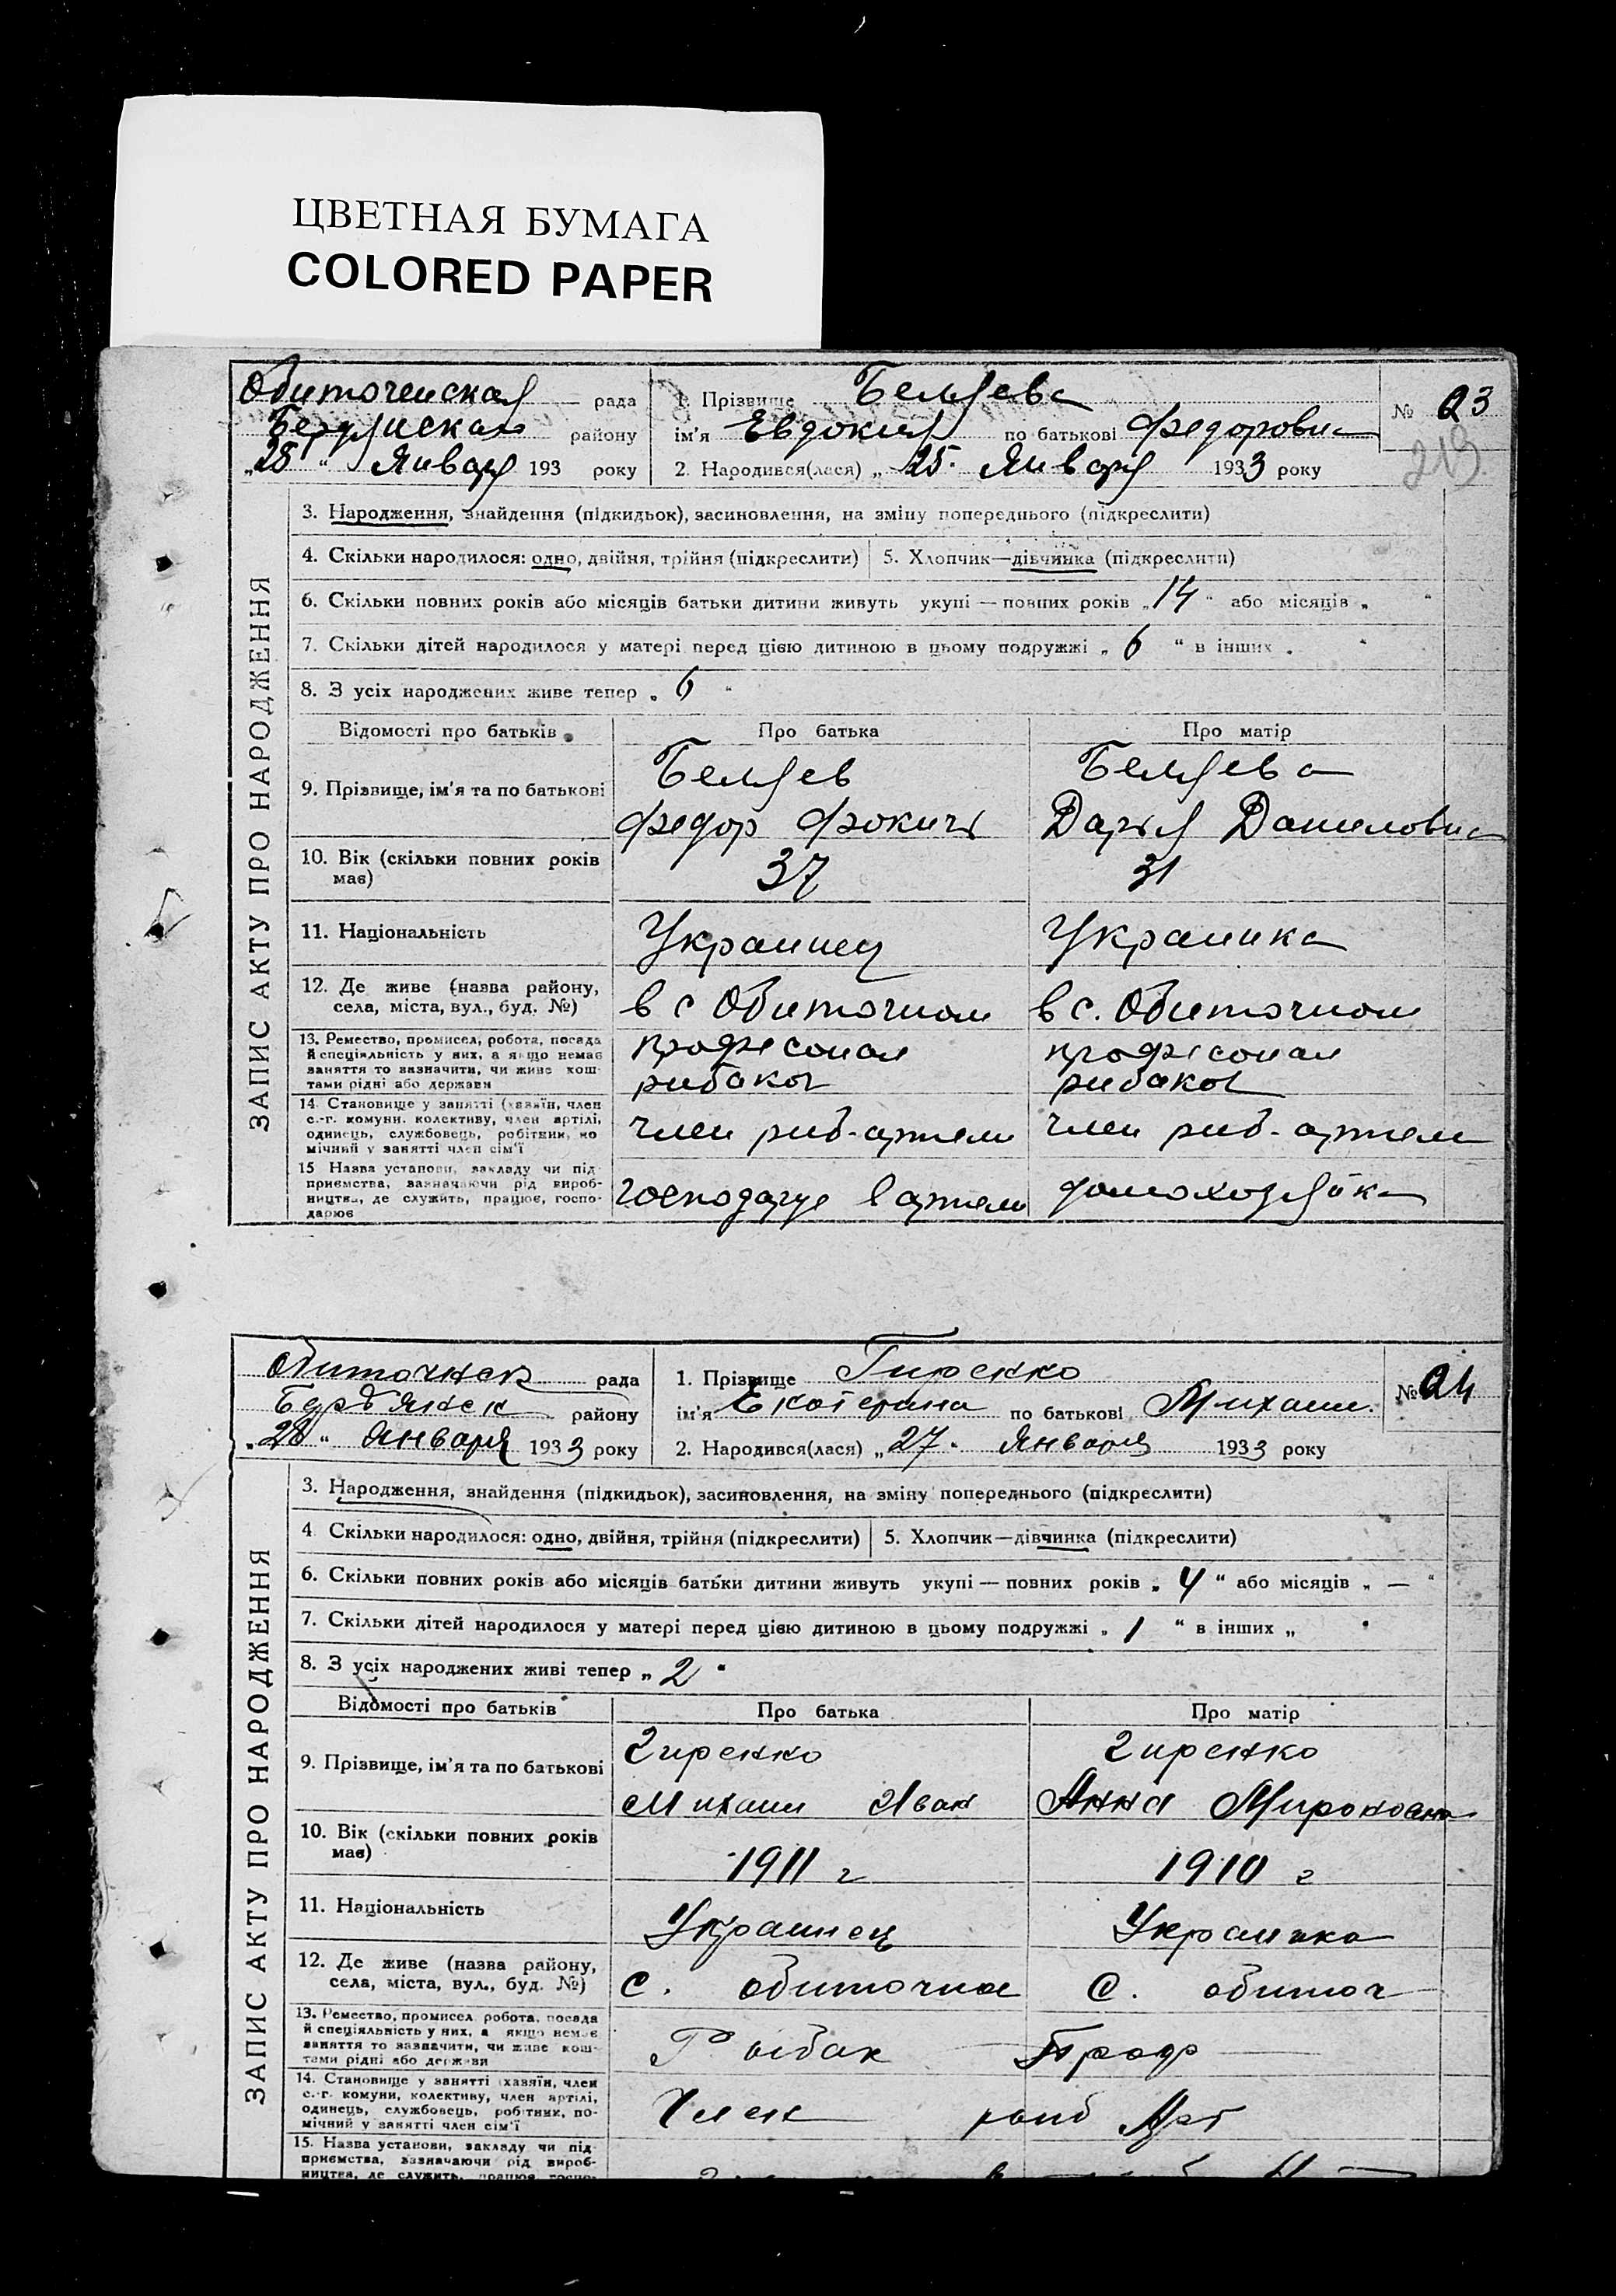 ЦВЕТНАЯ БУМАГА
COLORED PAPER
Обиточенская рада
Бердянская району
„28“ Января 193 року
1. Прізвище Беляева
ім'я Евдокия по батькові Федоровна
2. Народився(лася) „25. Января 1933 року
№ 23
213
ЗАПИС АКТУ ПРО НАРОДЖЕННЯ
3. Народження, знайдення (підкидьок), засиновлення, на зміну попереднього (підкреслити)
4. Скільки народилося: одно, двійня, трійня (підкреслити) 5. Хлопчик—дівчинка (підкреслити)
6. Скільки повних років або місяців батьки дитини живуть укупі — повних років „14“ або місяців „ “
7. Скільки дітей народилося у матері перед цією дитиною в цьому подружжі „ 6 “ в інших „
8. З усіх народжених живе тепер „ 6 “
Відомості про батьків Про батька Про матір
9. Прізвище, ім'я та по батькові
Беляев Беляева
Федор Фокичь Дарья Даниловна
10. Вік (скільки повних років має) 37 31
11. Національність Украинец Украинка
12. Де живе (назва району, села, міста, вул., буд. №) в с Обиточном в с. Обиточном
13. Ремество, промисел, робота, посада й спеціяльність у них, а якщо немає заняття то зазначити, чи живе коштами рідні або держави
професонал професонал
рибакы рибакы
14. Становище у занятті (хазяїн, член с.-г. комуни, колективу, член артілі, одинець, службовець, робітник, помічний у занятті член сім'ї
член риб-артели член риб-артели
15 Назва установи, закладу чи підприємства, зазначаючи рід виробництва, де служить, працює, господарює
господарує в артели домохозяйка
Обиточнск рада
Бердъянск району
„28“ Января 1933 року
1. Прізвище Гиренко
ім'я Екатерина по батькові Михаил.
2. Народився(лася) „27. Января 1933 року
№ 24
ЗАПИС АКТУ ПРО НАРОДЖЕННЯ
3. Народження, знайдення (підкидьок), засиновлення, на зміну попереднього (підкреслити)
4 Скільки народилося: одно, двійня, трійня (підкреслити) 5. Хлопчик—дівчинка (підкреслити)
6. Скільки повних років або місяців батьки дитини живуть укупі — повних років „ 4 “ або місяців „ — “
7. Скільки дітей народилося у матері перед цією дитиною в цьому подружжі „ 1 “ в інших „ “
8. З усіх народжених живі тепер „ 2 “
Відомості про батьків Про батька Про матір
9. Прізвище, ім'я та по батькові
Гиренко Гиренко
Михаил Иван Анна Мироновна
10. Вік (скільки повних років має) 1911 г 1910 г
11. Національність Украинец Украинка
12. Де живе (назва району, села, міста, вул., буд. №) с. обиточна с. обиточ
13. Ремество, промисел робота, посада й спеціяльність у них, а якщо немає заняття то зазначити, чи живе коштами рідні або держави
Рыбак Проф
14. Становище у занятті (хазяїн, член с.-г. комуни, колективу, член артілі, одинець, службовець, робітник, помічний у занятті член сім'ї
Член рыб Арт
15. Назва установи, закладу чи підприємства, зазначаючи рід виробництва, де служить, працює госпо-